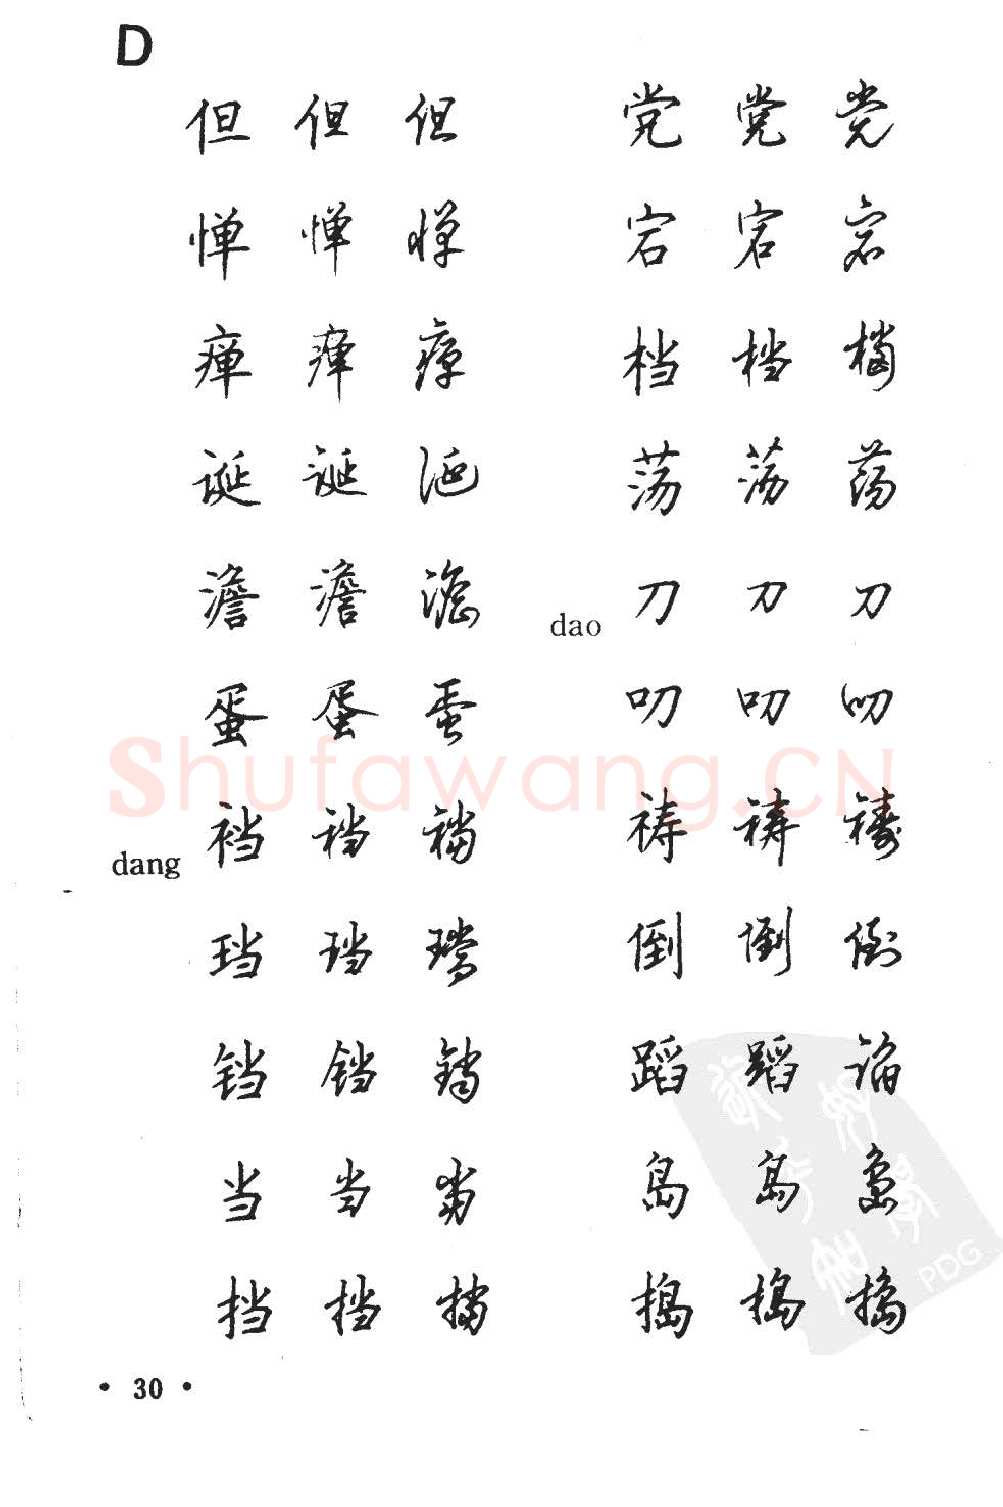 D
但 但 但
惮 惮 惮
瘅 瘅 瘅
诞 诞 诞
澹 澹 澹
蛋 蛋 蛋
dang
裆 裆 裆
珰 珰 珰
铛 铛 铛
当 当 当
挡 挡 挡
党 党 党
宕 宕 宕
档 档 档
荡 荡 荡
dao
刀 刀 刀
叨 叨 叨
祷 祷 祷
倒 倒 倒
蹈 蹈 蹈
岛 岛 岛
捣 捣 捣
Shufawang.CN
PDG
• 30 •